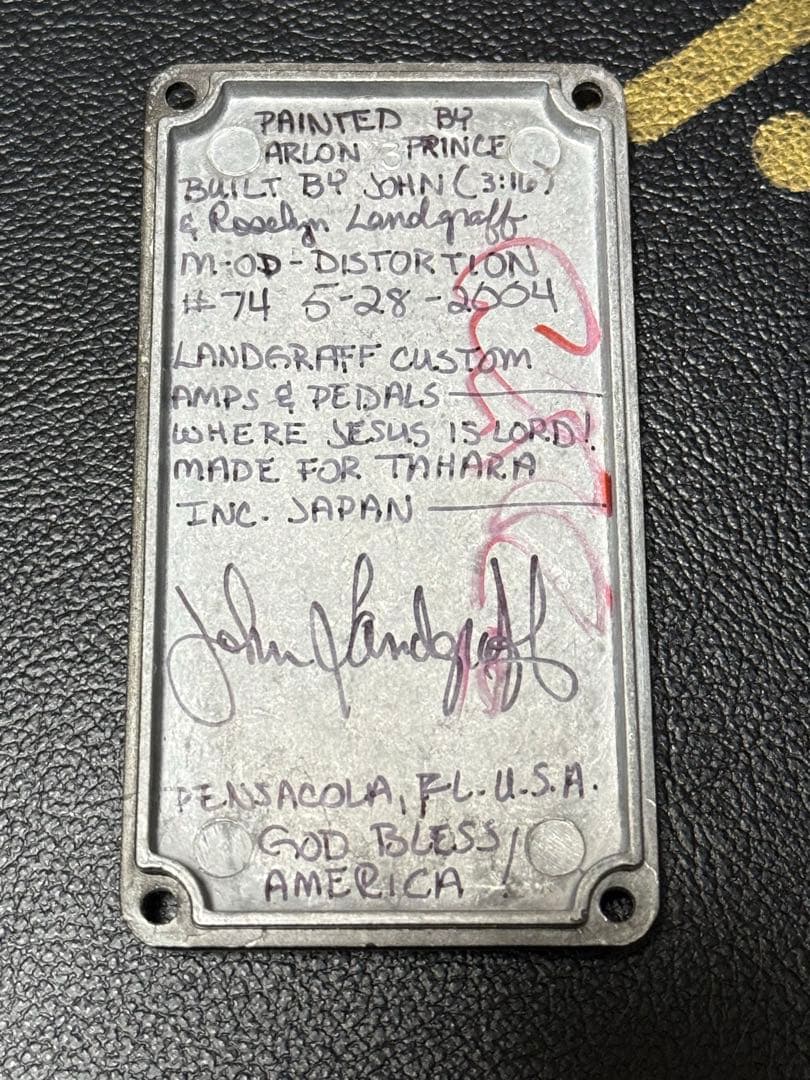 PAINTED BY
ARLON PRINCE
BUILT BY JOHN (3:16)
& Roselyn Landgraff
M-OD-DISTORTION
#74 5-28-2004
LANDGRAFF CUSTOM
AMPS & PEDALS
WHERE JESUS IS LORD!
MADE FOR TAHARA
INC. JAPAN
John Landgraff
PENSACOLA, FL. U.S.A.
GOD BLESS
AMERICA !